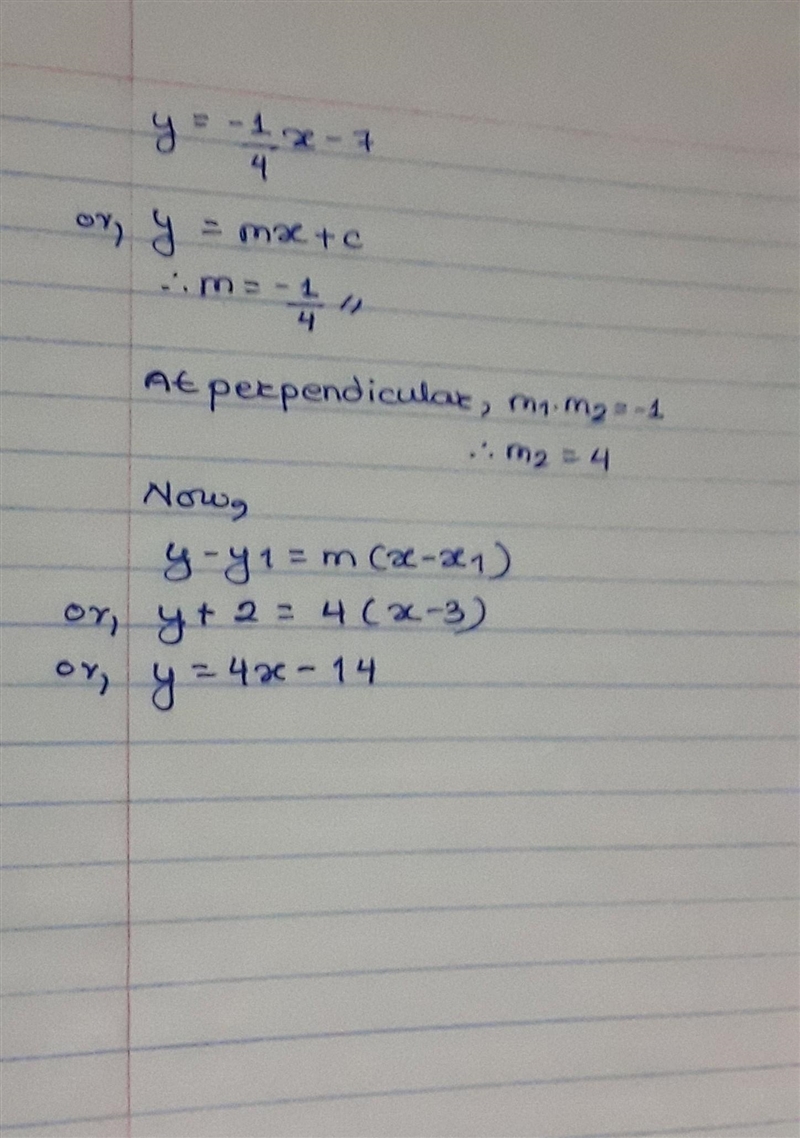 y = -1/4 x - 7
or, y = mx + c
∴ m = -1/4 //
At perpendicular, m1. m2 = -1
∴ m2 = 4
Now,
y - y1 = m (x - x1)
or, y + 2 = 4 (x - 3)
or, y = 4x - 14